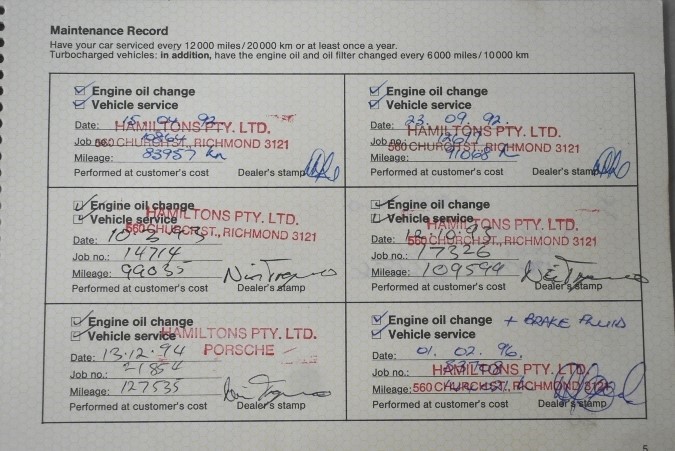 Maintenance Record
Have your car serviced every 12 000 miles/20 000 km or at least once a year.
Turbocharged vehicles: in addition, have the engine oil and oil filter changed every 6 000 miles/10 000 km
Engine oil change
Vehicle service
Date: 15. 04. 92.
HAMILTONS PTY. LTD.
Job no.: 10864
560 CHURCH ST., RICHMOND 3121
Mileage: 83957 km
Performed at customer's cost Dealer's stamp
Engine oil change
Vehicle service
Date: 23. 09. 92.
HAMILTONS PTY. LTD.
Job no.:
560 CHURCH ST., RICHMOND 3121
Mileage: 91068
Performed at customer's cost Dealer's stamp
Engine oil change
Vehicle service
HAMILTONS PTY. LTD.
560 CHURCH ST., RICHMOND 3121
Date:
Job no.: 14714
Mileage: 99035
Performed at customer's cost Dealer's stamp
Engine oil change
Vehicle service
HAMILTONS PTY. LTD.
560 CHURCH ST., RICHMOND 3121
Date: 12.10.93
Job no.: 17326
Mileage: 109594
Performed at customer's cost Dealer's stamp
Engine oil change
Vehicle service
HAMILTONS PTY. LTD.
PORSCHE
Date: 13.12.94
Job no.: 21854
Mileage: 127535
Performed at customer's cost Dealer's stamp
Engine oil change + BRAKE FLUID
Vehicle service
Date: 01. 02. 96.
HAMILTONS PTY. LTD.
Job no.:
Mileage:
560 CHURCH ST., RICHMOND 3121
Performed at customer's cost Dealer's stamp
5